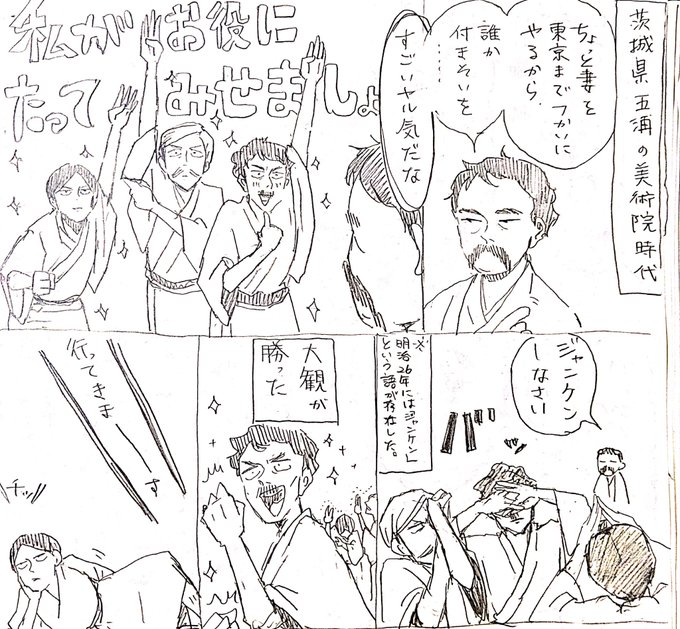 茨城県 五浦の美術院時代
ちょっと妻を
東京までつかいに
やるから
誰か
付きそいを
……
すごいヤル気だな
私がお役に
たってみせましょ
ジャンケン
しなさい
バッ
※明治26年には「ジャンケン」
という語が存在した。
大観が
勝った
行ってきまーーす
チッ